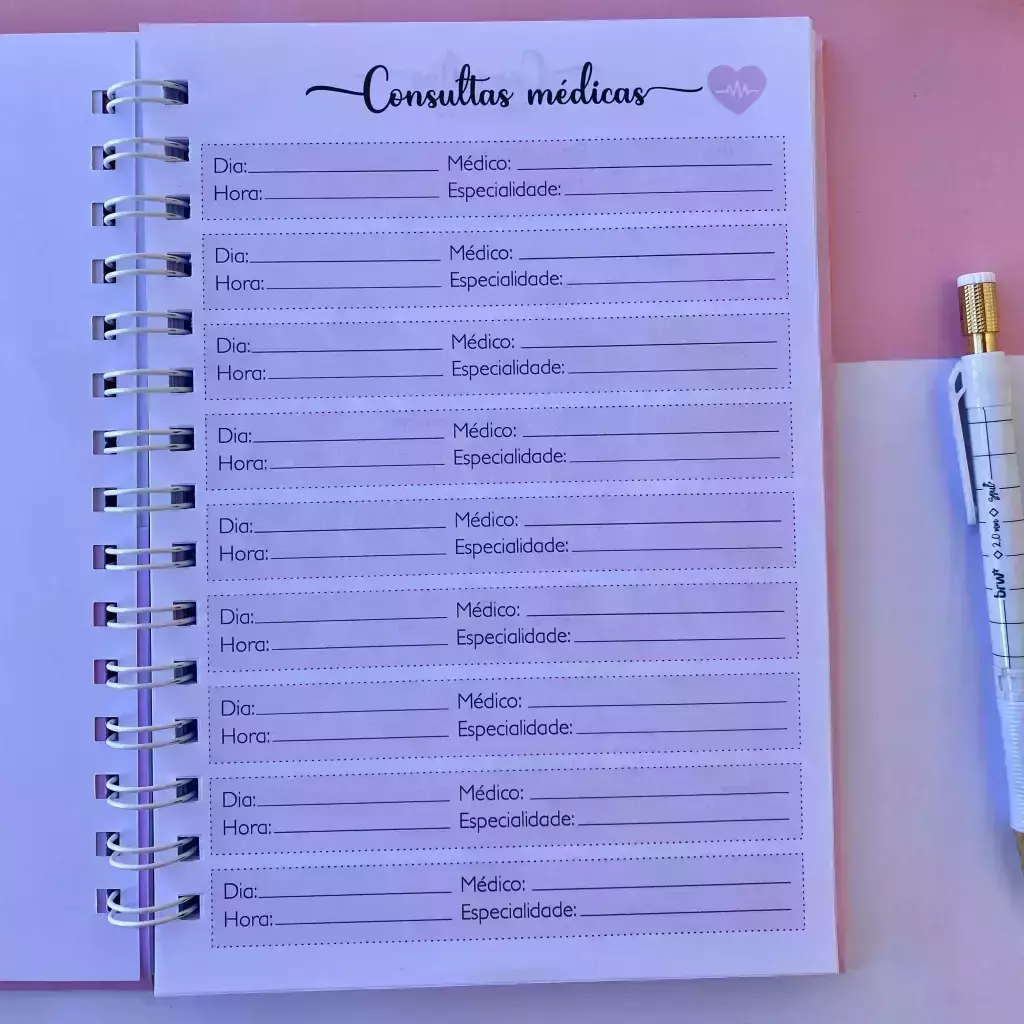 Consultas médicas
Dia: Médico:
Hora: Especialidade:
Dia: Médico:
Hora: Especialidade:
Dia: Médico:
Hora: Especialidade:
Dia: Médico:
Hora: Especialidade:
Dia: Médico:
Hora: Especialidade:
Dia: Médico:
Hora: Especialidade:
Dia: Médico:
Hora: Especialidade:
Dia: Médico:
Hora: Especialidade:
Dia: Médico:
Hora: Especialidade:
brw 2.0 mm